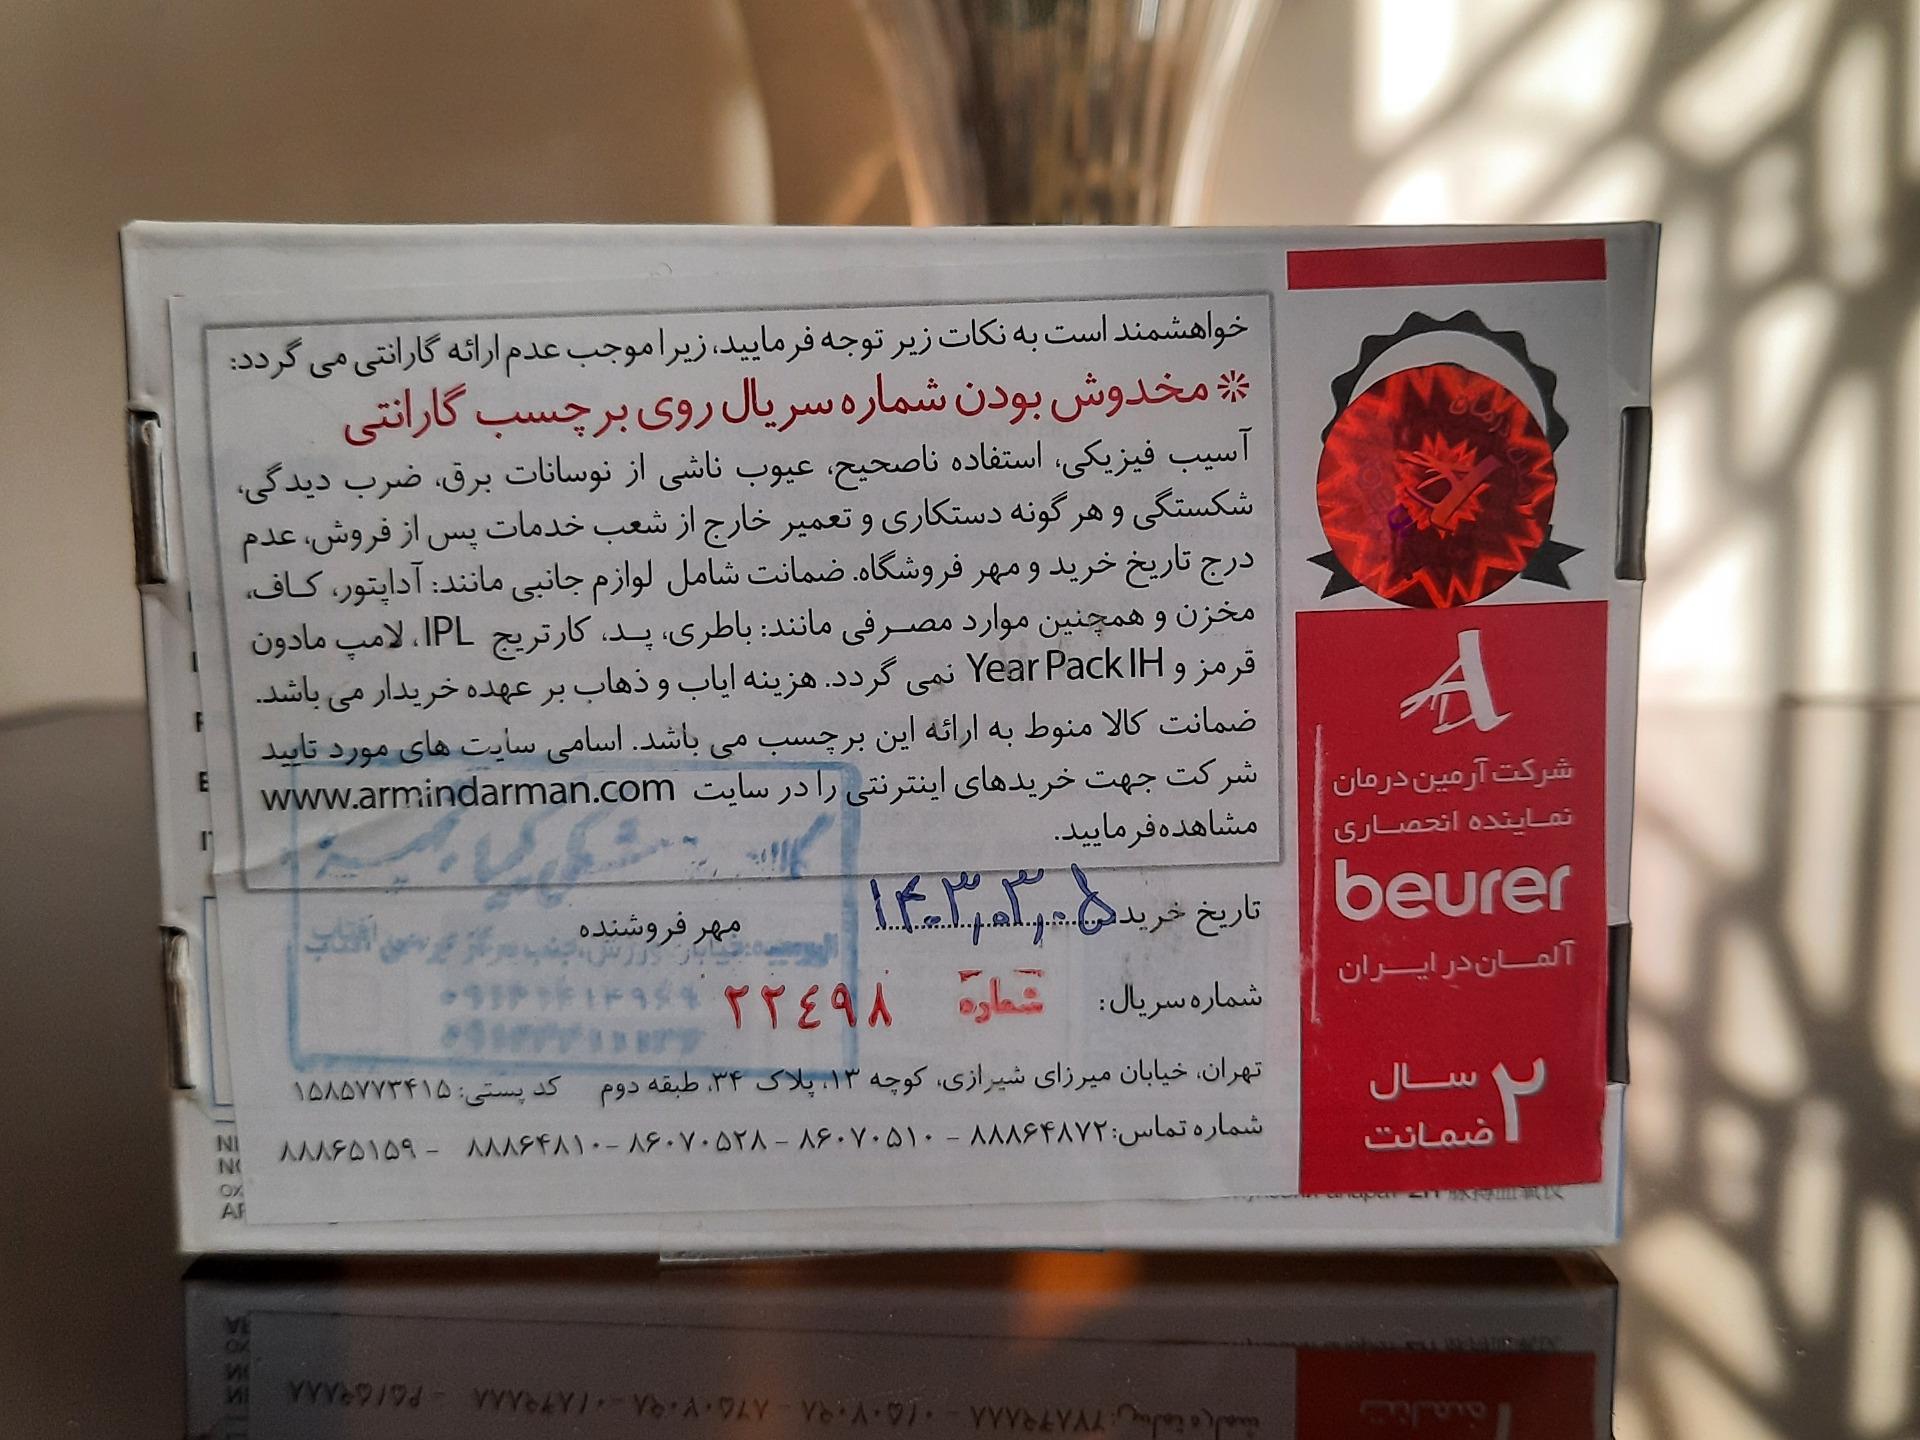 خواهشمند است به نکات زیر توجه فرمایید، زیرا موجب عدم ارائه گارانتی می گردد:
* مخدوش بودن شماره سریال روی برچسب گارانتی
آسیب فیزیکی، استفاده ناصحیح، عیوب ناشی از نوسانات برق، ضرب دیدگی،
شکستگی و هرگونه دستکاری و تعمیر خارج از شعب خدمات پس از فروش، عدم
درج تاریخ خرید و مهر فروشگاه. ضمانت شامل لوازم جانبی مانند: آداپتور، کاف،
مخزن و همچنین موارد مصرفی مانند: باطری، پد، کارتریج IPL، لامپ مادون
قرمز و Year Pack IH نمی گردد. هزینه ایاب و ذهاب بر عهده خریدار می باشد.
ضمانت کالا منوط به ارائه این برچسب می باشد. اسامی سایت های مورد تایید
شرکت جهت خریدهای اینترنتی را در سایت www.armindarman.com
مشاهده فرمایید.
تاریخ خرید ۱۴۰۳,۰۳,۰۵
مهر فروشنده
شماره سریال: شماره ۲۲٤۹۸
تهران، خیابان میرزای شیرازی، کوچه ۱۳، پلاک ۳۴، طبقه دوم کد پستی: ۱۵۸۵۷۷۳۴۱۵
شماره تماس: ۸۸۸۶۴۸۷۲ - ۸۶۰۷۰۵۱۰ - ۸۶۰۷۰۵۲۸ - ۸۸۸۶۴۸۱۰ - ۸۸۸۶۵۱۵۹
شرکت آرمین درمان
نماینده انحصاری
beurer
آلمـان در ایـران
۲ سـال
ضمانت